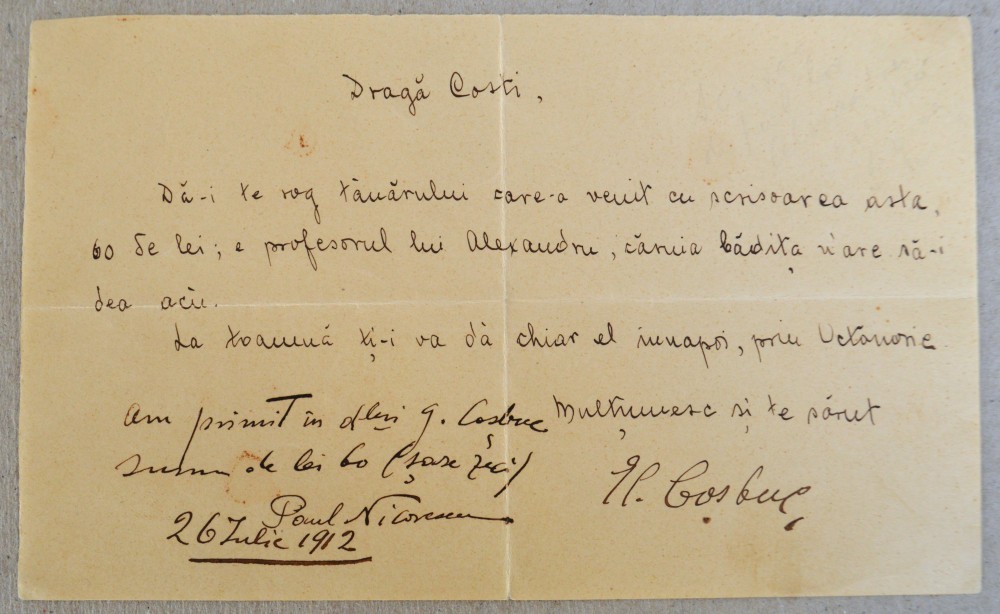 Dragă Costi,
Dă-i te rog tânărului care-a venit cu scrisoarea asta,
60 de lei; e profesorul lui Alexandru, căruia bădița n'are să-i
dea aciu.
La toamnă ți-i va dà chiar el înnapoi, prin Octavorie
Mulțumesc și te sărut
Coșbuc
Am primit în dlui G. Cosbuc
suma de lei 60 (șase zeci)
Paul Nicorescu
26 Iulie 1912